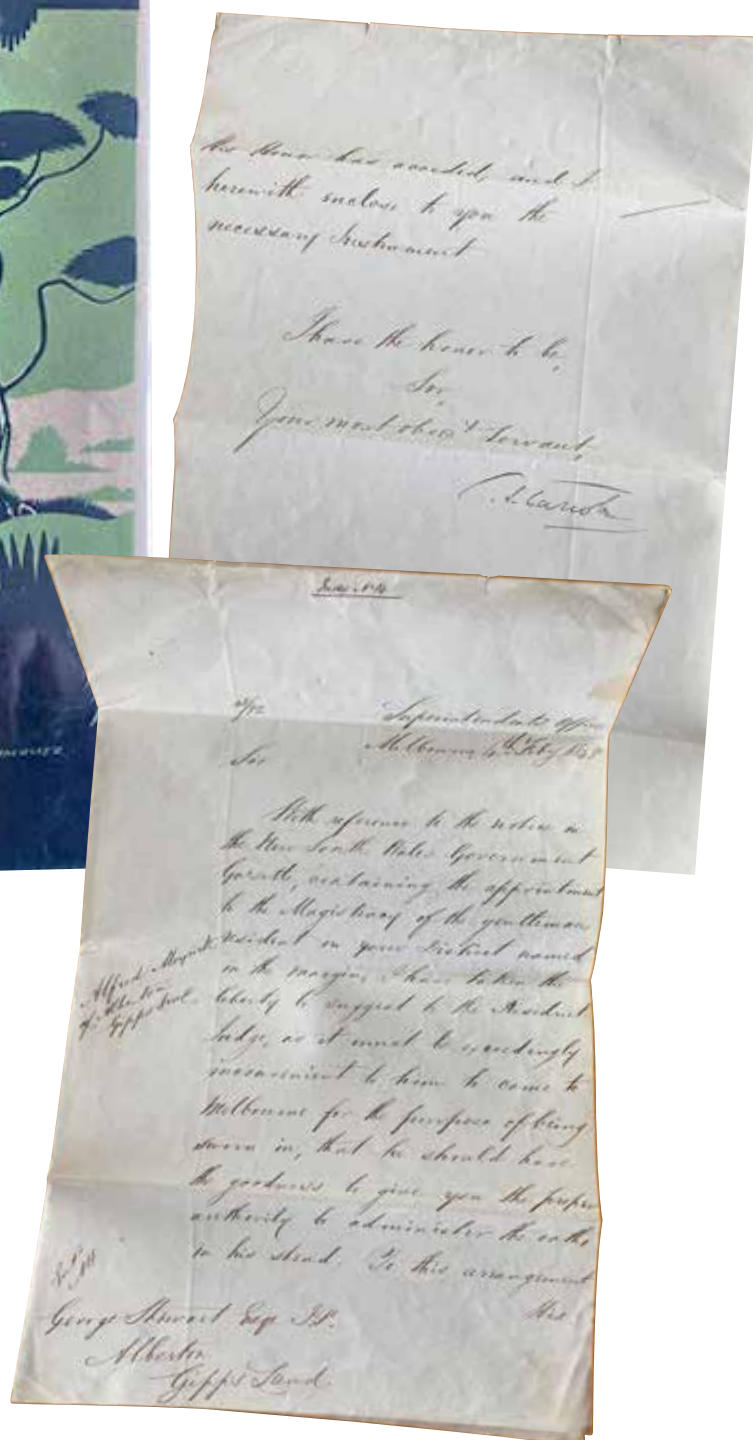 His Honor has acceded, and I
herewith enclose to you the
necessary Instrument
I have the honor to be,
Sir,
Your most obedt Servant,
48/
Superintendents Office
Melbourne 4th Feby 1848
Sir
With reference to the notice in
the New South Wales Government
Gazette, containing the appointment
to the Magistracy of the gentleman
resident in your District named
Alfred
of Alberton
Gipps Land
in the margin, I have taken the
liberty to suggest to the Resident
Judge, as it must be exceedingly
inconvenient to him to come to
Melbourne for the purpose of being
sworn in, that he should have
the goodness to give you the proper
authority to administer the oaths
in his stead. To this arrangement
His
George Stewart Esqr J.P.
Alberton
Gipps Land